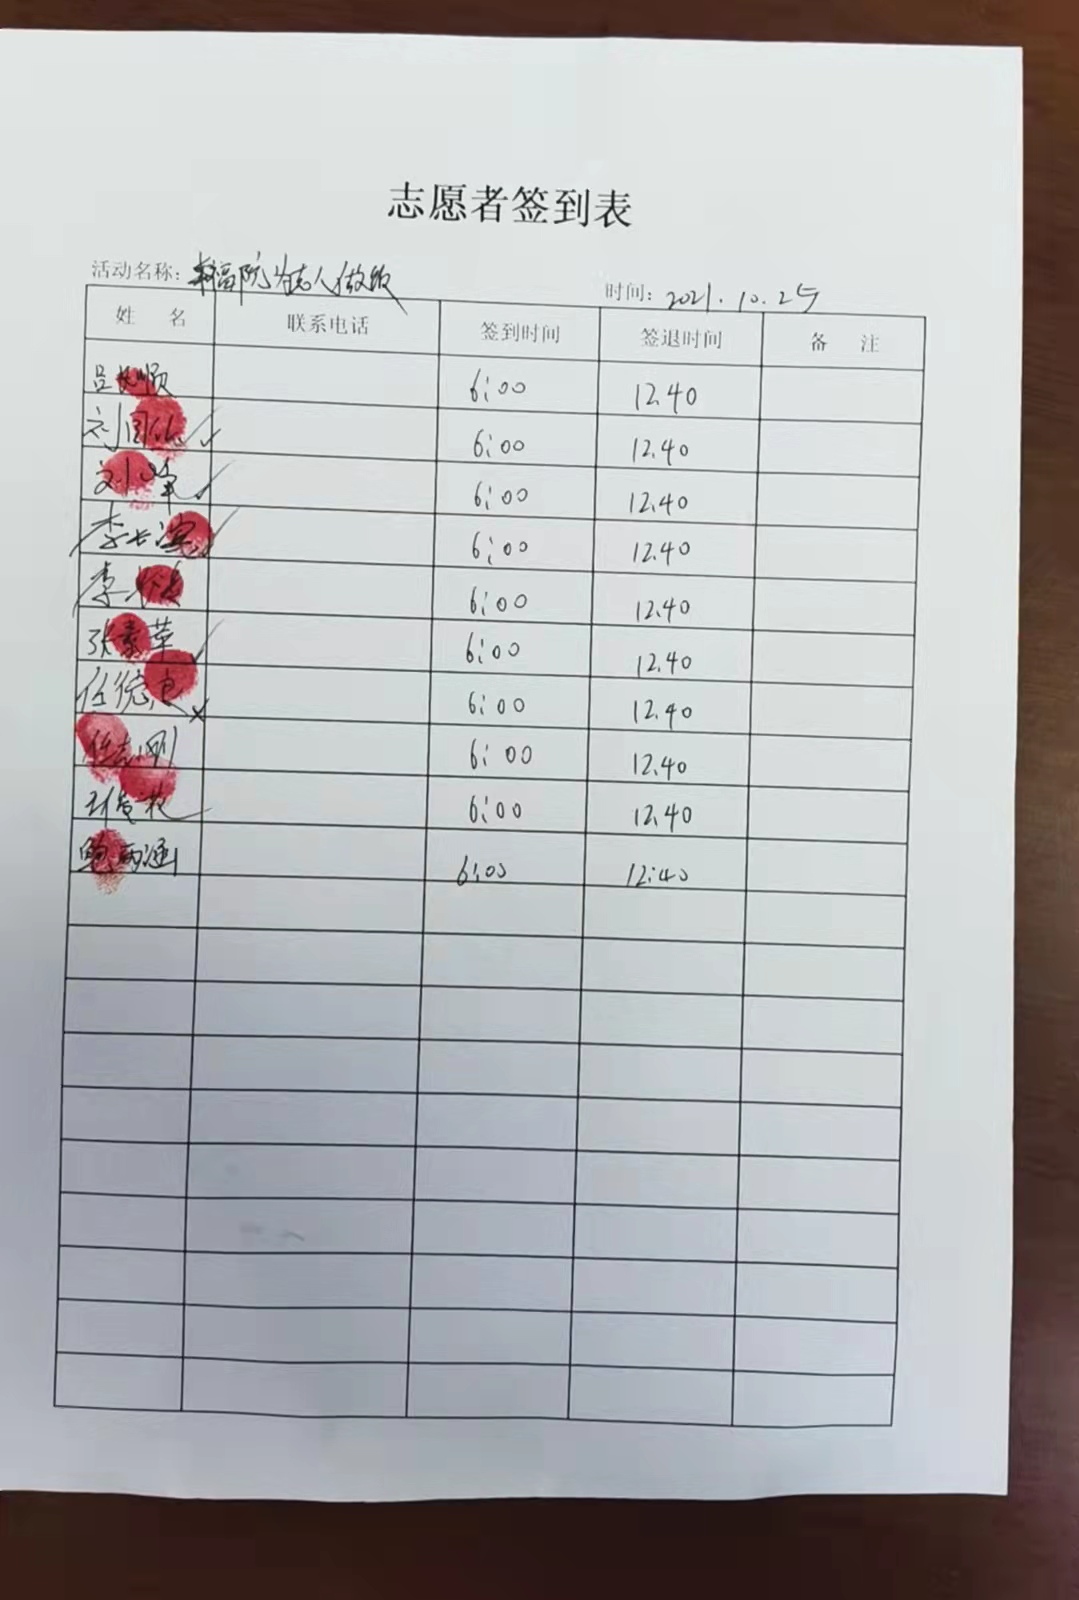 志愿者签到表
活动名称：福院为老人做饭 时间：2021.10.25
姓 名 联系电话 签到时间 签退时间 备 注
吕长顺 6:00 12.40
刘国 6:00 12.40
6:00 12.40
李长滨 6:00 12.40
李 6:00 12.40
张素苹 6:00 12.40
任德良 6:00 12.40
任志刚 6:00 12.40
6:00 12.40
鲍雨涵 6:00 12:40